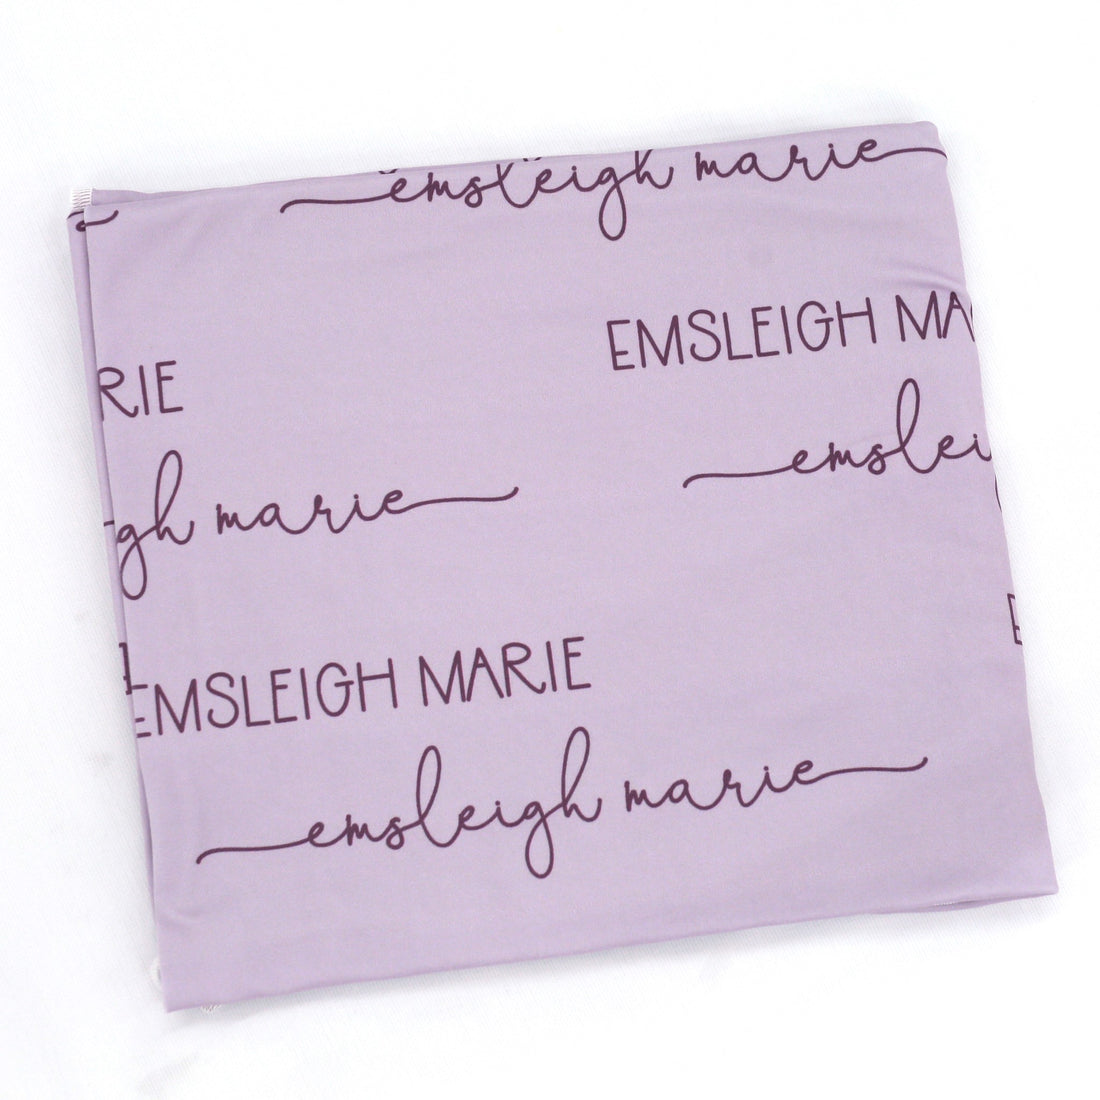 emsleigh marie
EMSLEIGH MA
RIE
emslei
gh marie
EMSLEIGH MARIE
emsleigh marie